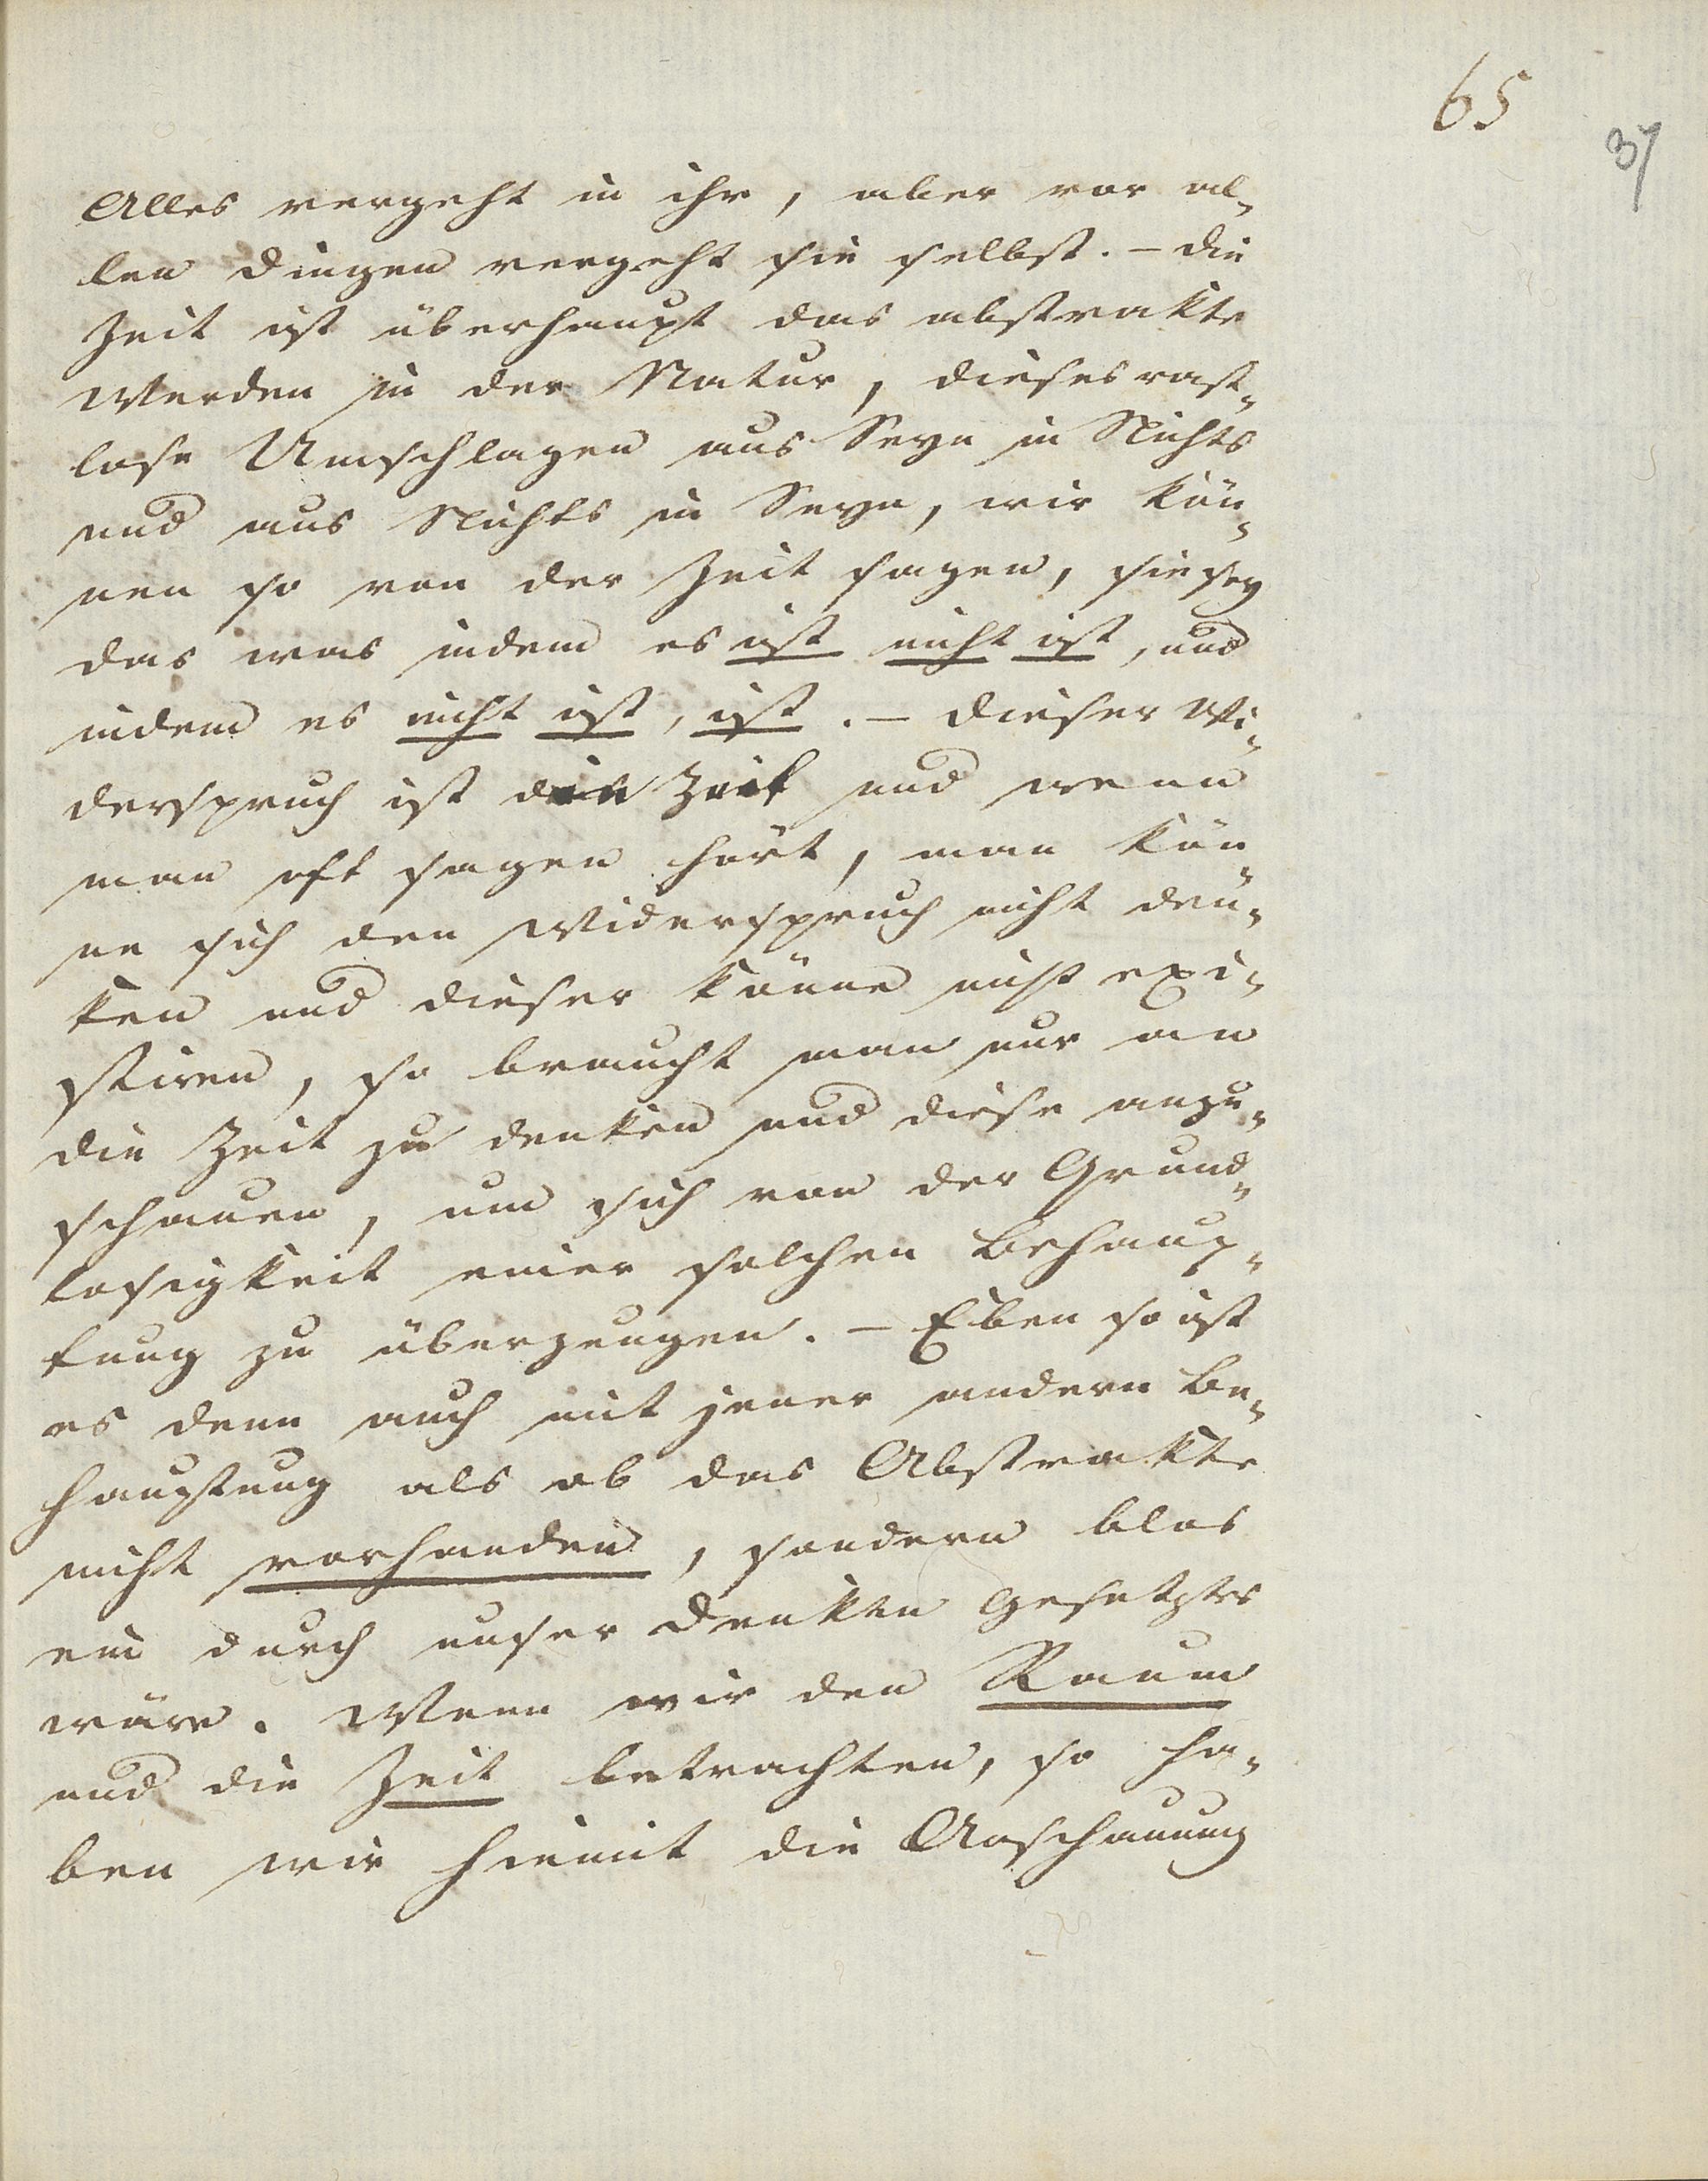 65
37
Alles vergeht in ihr, aber vor al-
len Dingen vergeht sie selbst. – Die
Zeit ist überhaupt das abstrakte
Werden in der Natur, dieses rast-
lose Umschlagen aus Seyn in Nichts
und aus Nichts in Seyn, wir kön-
nen so von der Zeit sagen, sie sey
das was indem es ist nicht ist, und
indem es nicht ist, ist. – Dieser Wi-
derspruch ist die Zeit und wenn
man oft sagen hört, man kön-
ne sich den Widerspruch nicht den-
ken und dieser könne nicht exi-
stiren, so braucht man nur an
die Zeit zu denken und diese anzu-
schauen, um sich von der Grund-
losigkeit einer solchen Behaup-
tung zu überzeugen. – Eben so ist
es denn auch mit jener andern Be-
hauptung als ob das Abstrakte
nicht vorhanden, sondern blos
ein durch unser Denken Gesetztes
wäre. Wenn wir den Raum
und die Zeit betrachten, so ha-
ben wir hiemit die Anschauung